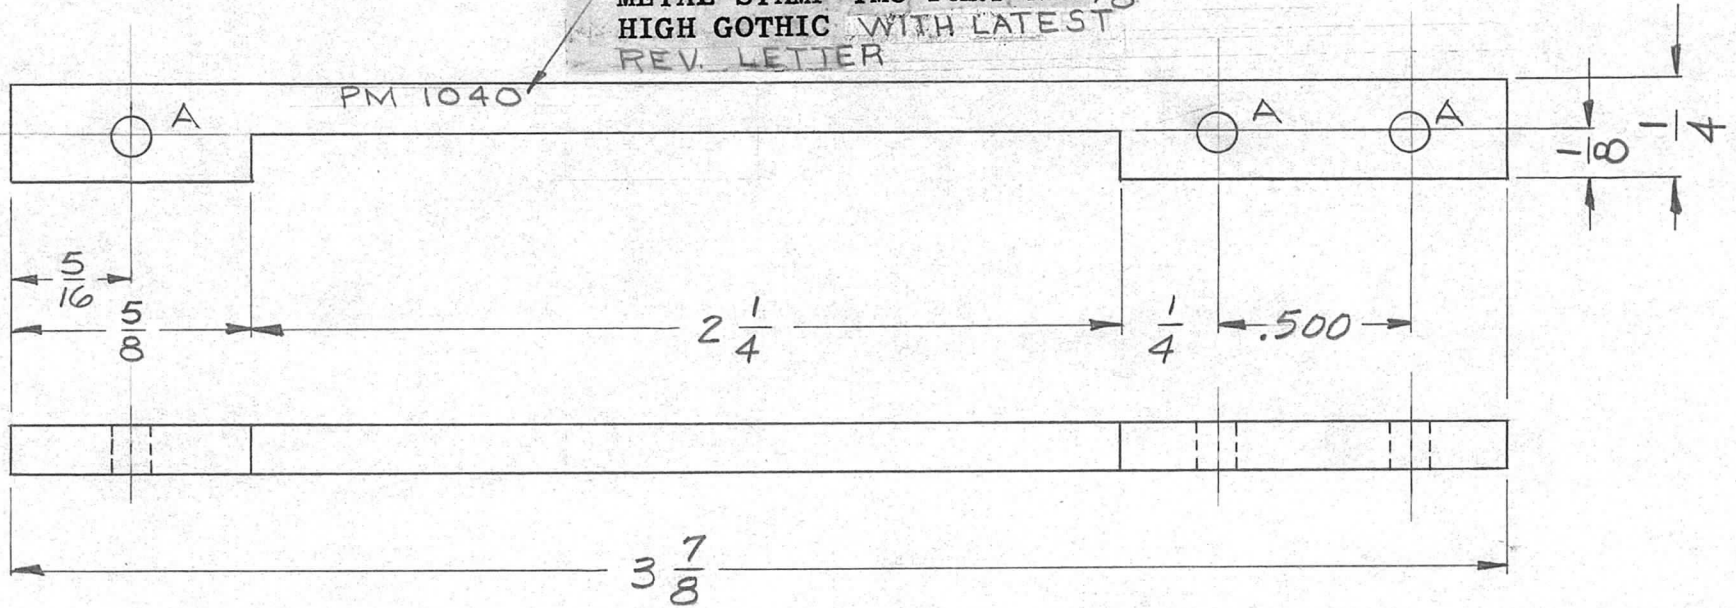 HIGH GOTHIC WITH LATEST
REV. LETTER
PM 1040
A
A
A
1/8
1/4
5/16
5/8
2 1/4
1/4
.500
3 7/8